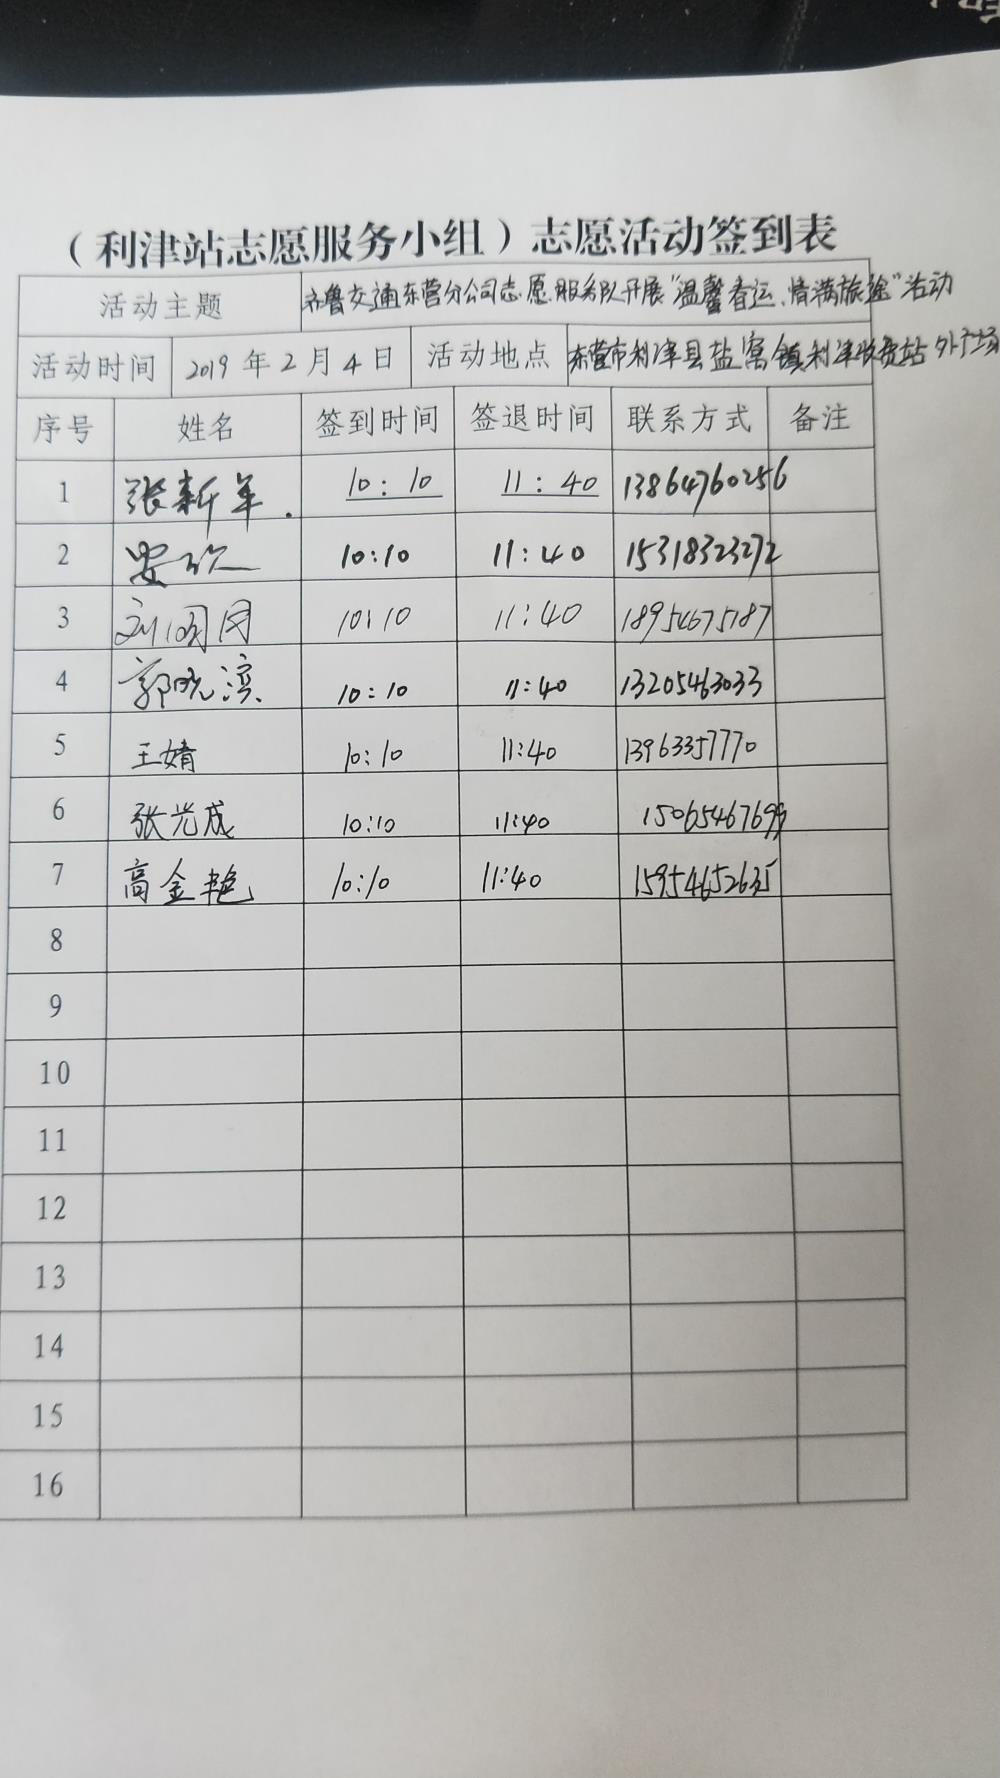 （利津站志愿服务小组）志愿活动签到表
活动主题 齐鲁交通东营分公司志愿服务队开展“温馨春运、情满旅途”活动
活动时间 2019年2月4日 活动地点 东营市利津县盐窝镇利津收费站外广场
序号 姓名 签到时间 签退时间 联系方式 备注
1 张新军. 10:10 11:40 13864760256
2 10:10 11:40 15318323272
3 10:10 11:40 18954675187
4 郭晓滨 10:10 11:40 13205463033
5 王婧 10:10 11:40 13963357770
6 张光成 10:10 11:40 15065467699
7 高金艳 10:10 11:40 15954652635
8
9
10
11
12
13
14
15
16